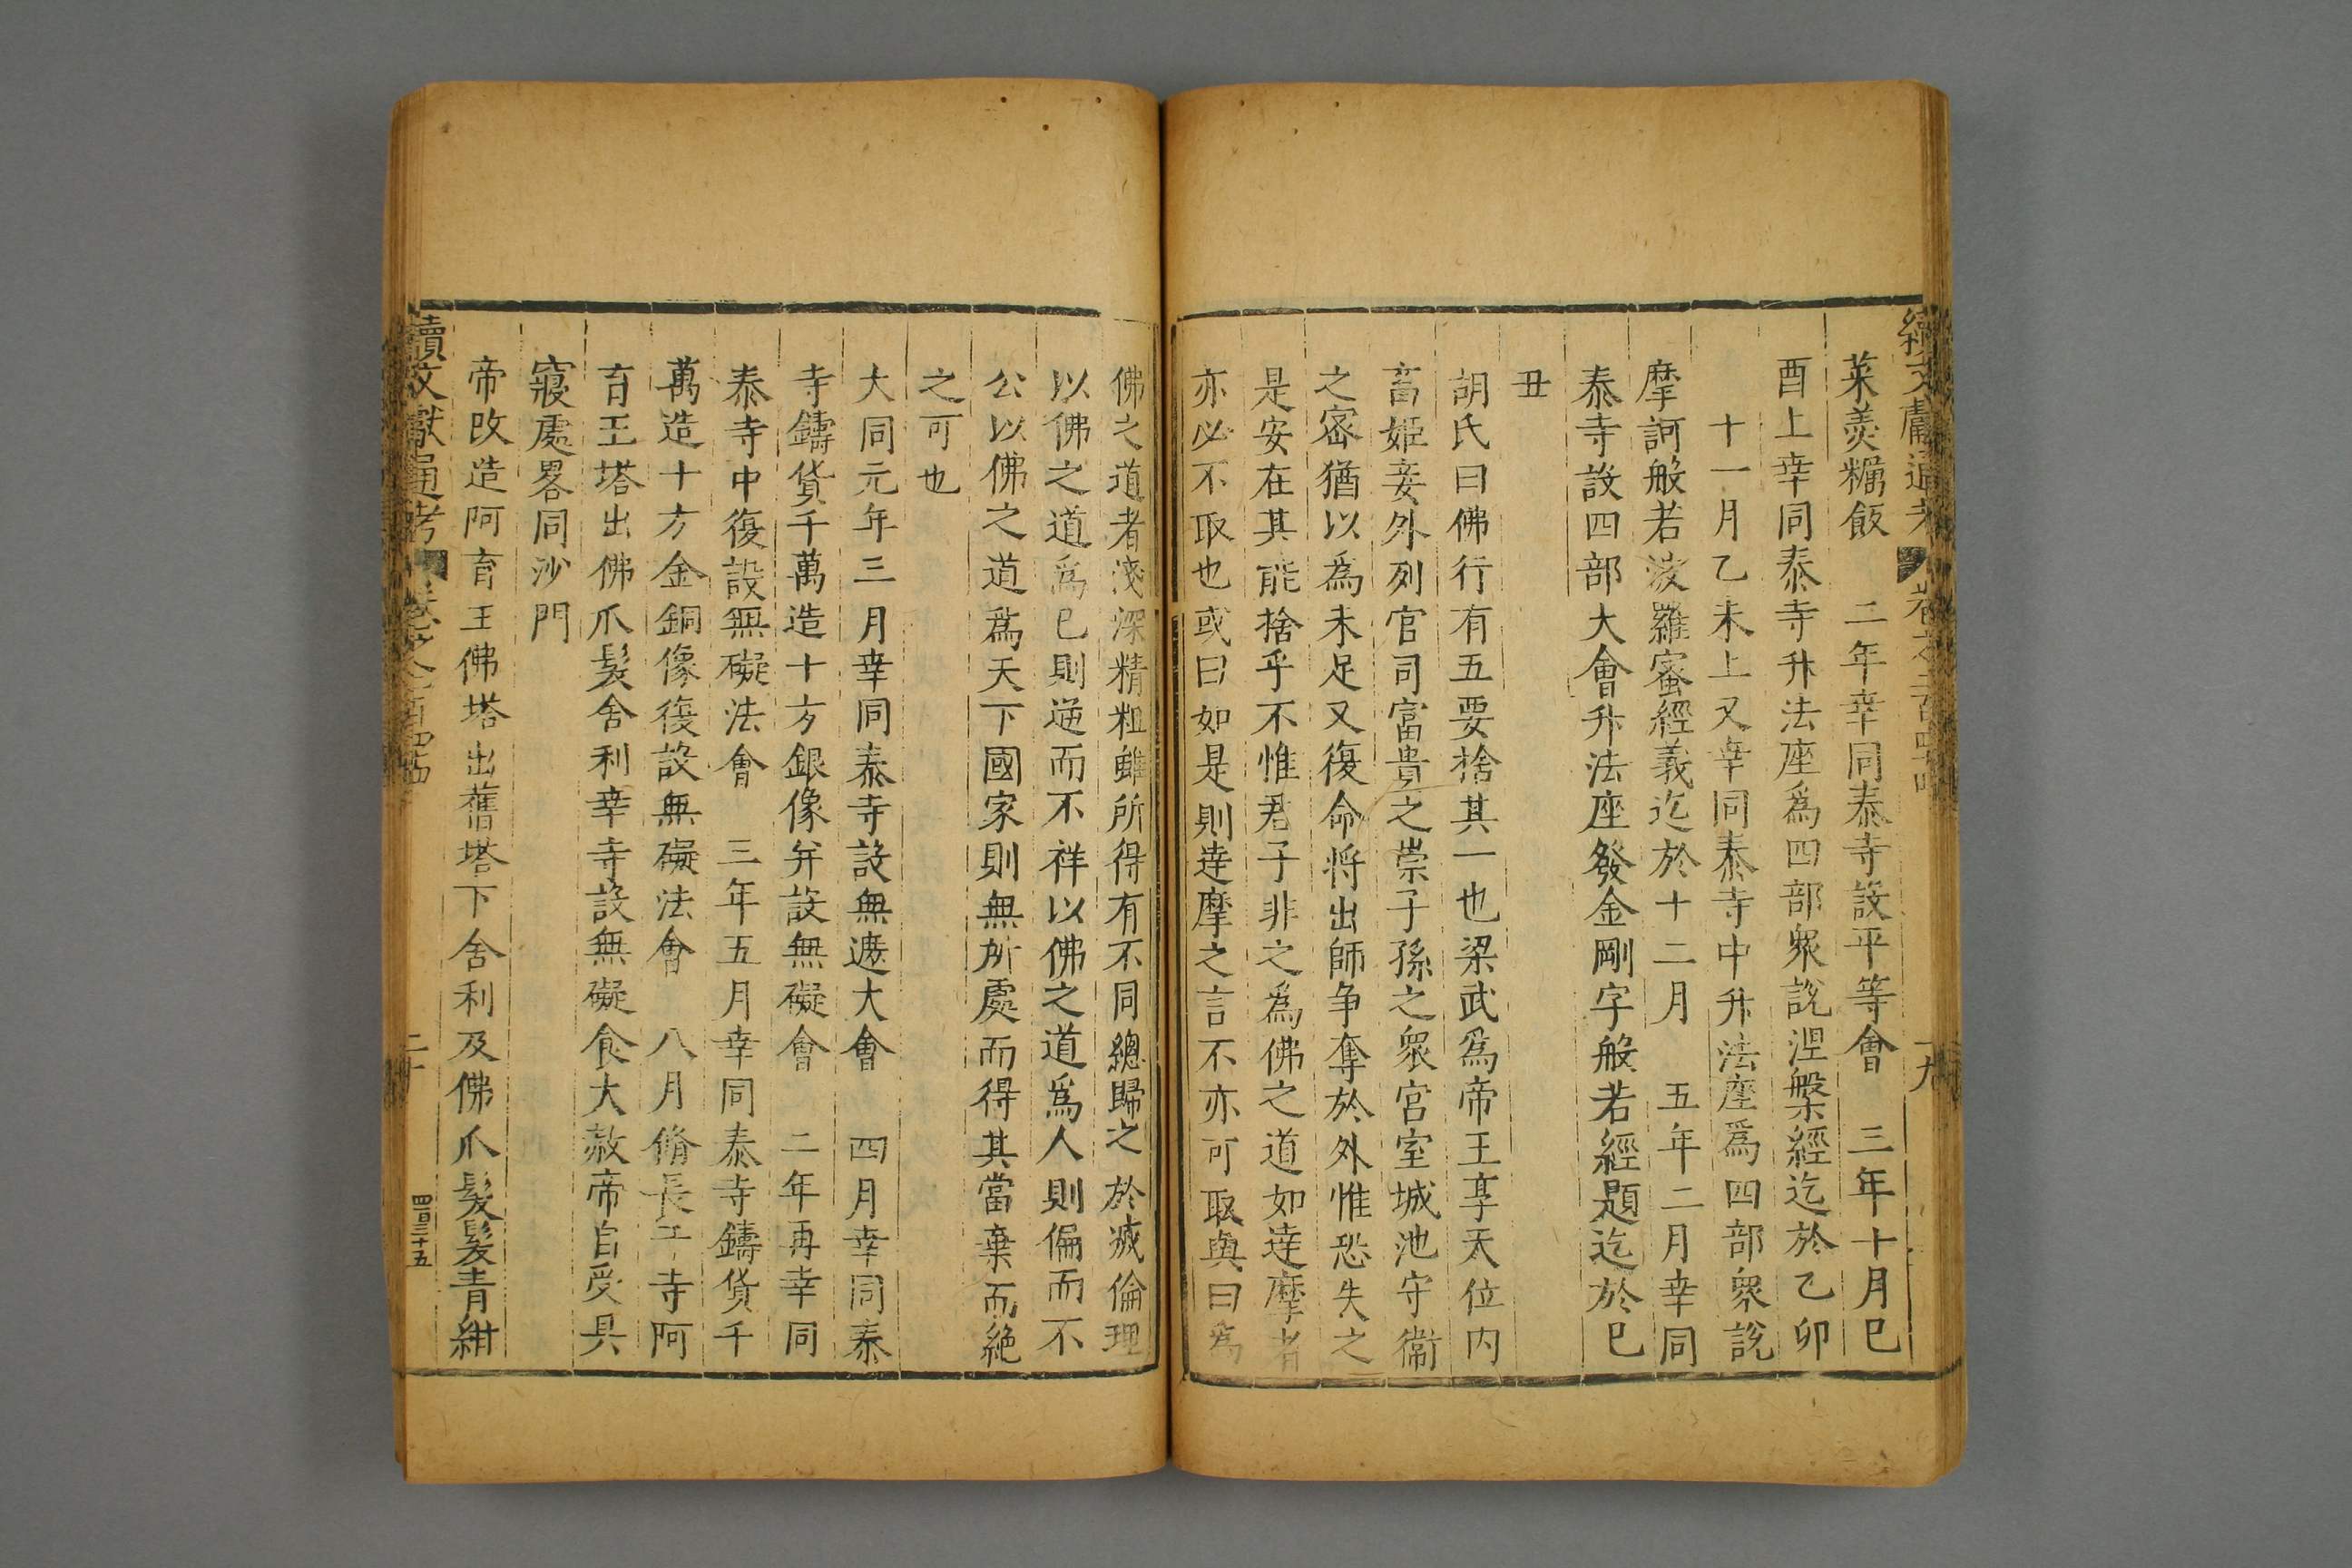 續文獻通考 卷之二百四十四 十九
菜羮糲飯 二年幸同泰寺設平等會 三年十月巳
酉上幸同泰寺升法座爲四部衆說涅槃經迄於乙卯
十一月乙未上又幸同泰寺中升法座爲四部衆說
摩訶般若波羅蜜經義迄於十二月 五年二月幸同
泰寺設四部大會升法座發金剛字般若經題迄於巳
丑
胡氏曰佛行有五要捨其一也梁武爲帝王享天位内
畜姬妾外列官司富貴之崇子孫之衆宮室城池守衞
之密猶以爲未足又復命將出師争奪於外惟恐失之
是安在其能捨乎不惟君子非之爲佛之道如達摩者
亦必不取也或曰如是則達摩之言不亦可取與曰爲
佛之道者淺深精粗雖所得有不同總歸之於滅倫理
以佛之道爲巳則逆而不祥以佛之道爲人則偏而不
公以佛之道爲天下國家則無所處而得其當棄而絶
之可也
大同元年三月幸同泰寺設無遮大會 四月幸同泰
寺鑄貨千萬造十方銀像并設無礙會 二年再幸同
泰寺中復設無礙法會 三年五月幸同泰寺鑄貨千
萬造十方金銅像復設無礙法會 八月脩長干寺阿
育王塔出佛爪髮舍利幸寺設無礙食大赦帝自受具
寢處畧同沙門
帝改造阿育王佛塔出舊塔下舍利及佛爪髮髮青紺
續文獻通考 卷之二百四十四 二十 四百三十五